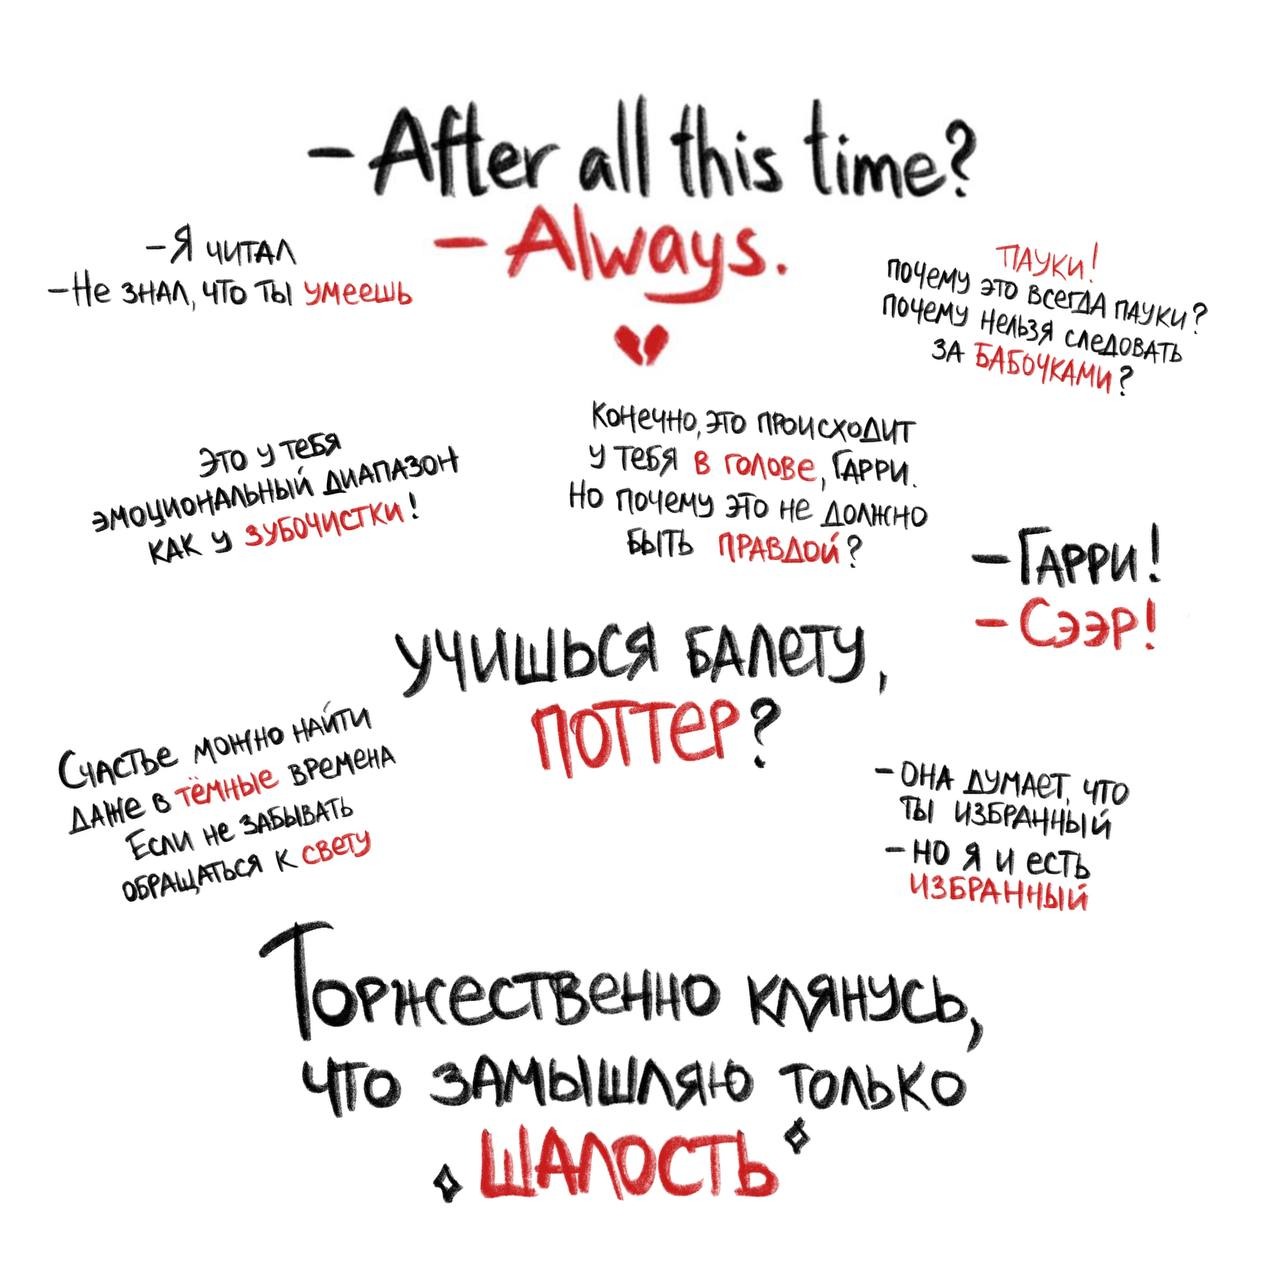 – After all this time?
– Always.
– Я читал
– Не знал, что ты умеешь
ПАУКИ!
почему это всегда пауки?
почему нельзя следовать
за БАБОЧКАМИ?
Это у тебя
эмоциональный диапазон
как у зубочистки!
Конечно, это происходит
у тебя в голове, Гарри.
Но почему это не должно
быть правдой?
– Гарри!
– Сээр!
Учишься балету,
Поттер?
Счастье можно найти
даже в тёмные времена
Если не забывать
обращаться к свету
– она думает, что
ты избранный
– но я и есть
избранный
Торжественно клянусь,
что замышляю только
шалость